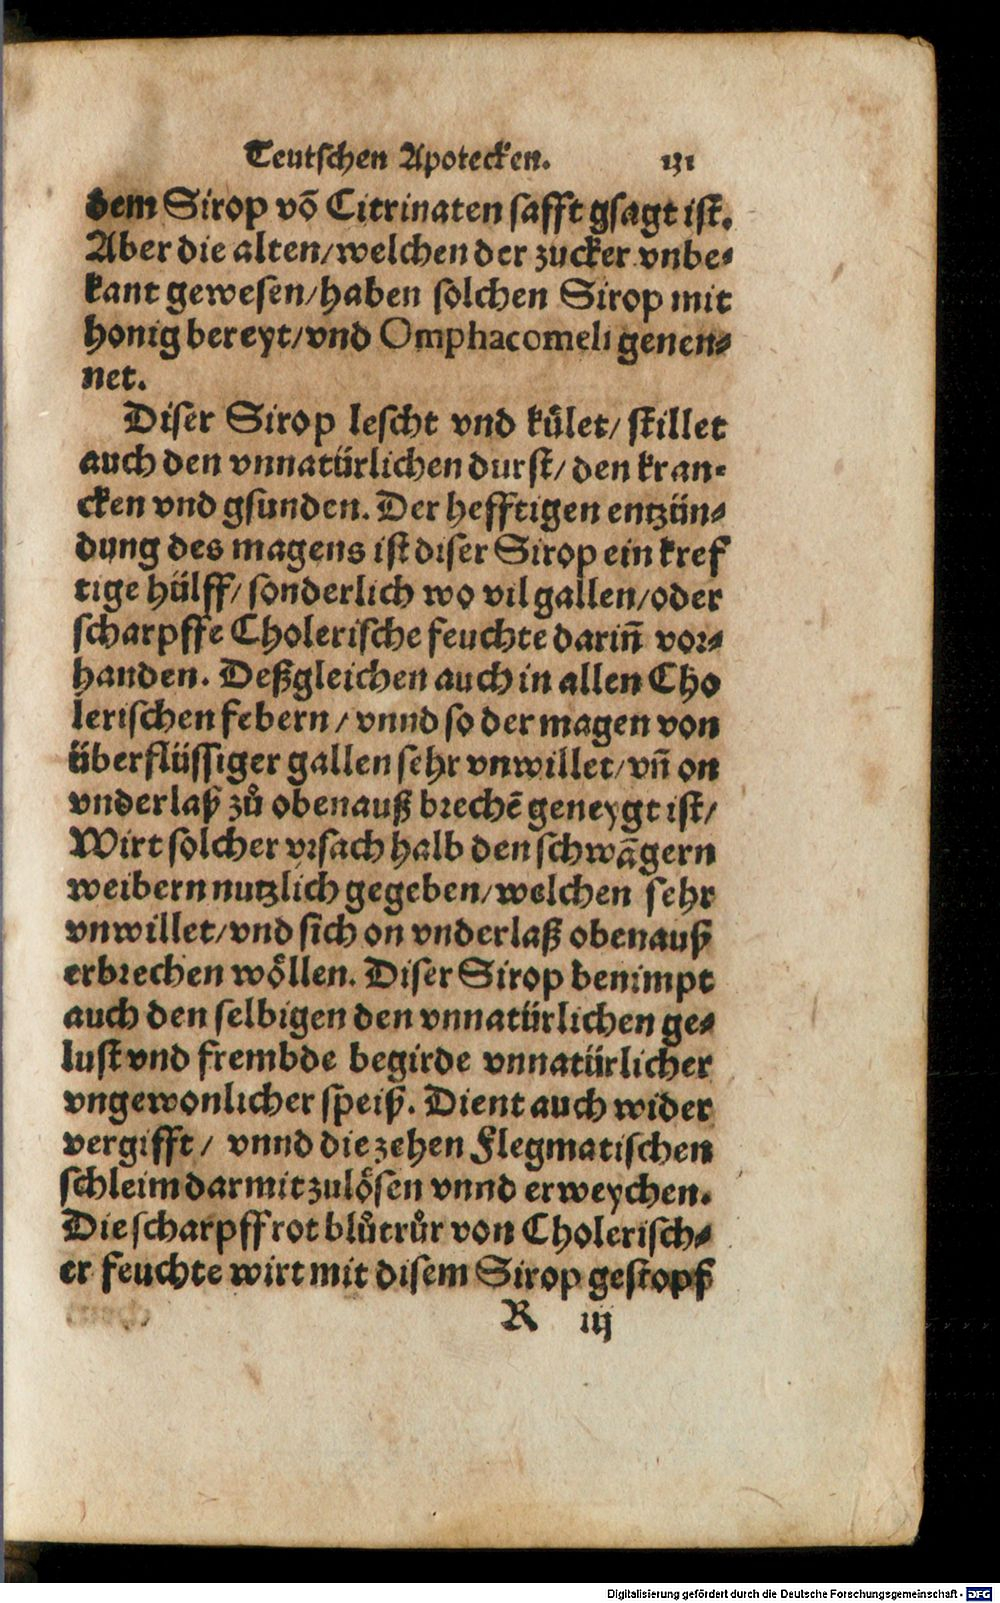 Teutschen Apotecken. 131
dem Sirop võ Citrinaten safft gsagt ist.
Aber die alten/welchen der zucker vnbe-
kant gewesen/haben solchen Sirop mit
honig bereyt/vnd Omphacomeli genen-
net.
Diser Sirop lescht vnd kuͤlet/ stillet
auch den vnnatürlichen durst/ den kran-
cken vnd gsunden. Der hefftigen entzün-
dung des magens ist diser Sirop ein kref
tige hülff/ sonderlich wo vil gallen/oder
scharpffe Cholerische feuchte dariñ vor-
handen. Deßgleichen auch in allen Cho
lerischen febern / vnnd so der magen von
überflüssiger gallen sehr vnwillet/vñ on
vnderlaß zuͦ obenauß brechẽ geneygt ist/
Wirt solcher vrsach halb den schwãgern
weibern nutzlich gegeben/welchen sehr
vnwillet/vnd sich on vnderlaß obenauß
erbrechen woͤllen. Diser Sirop benimpt
auch den selbigen den vnnatürlichen ge-
lust vnd frembde begirde vnnatürlicher
vngewonlicher speiß. Dient auch wider
vergifft / vnnd die zehen Flegmatischen
schleim darmit zuloͤsen vnnd erweychen.
Die scharpff rot bluͦtruͦr von Cholerisch-
er feuchte wirt mit disem Sirop gestopf
R iij
Digitalisierung gefördert durch die Deutsche Forschungsgemeinschaft - DFG